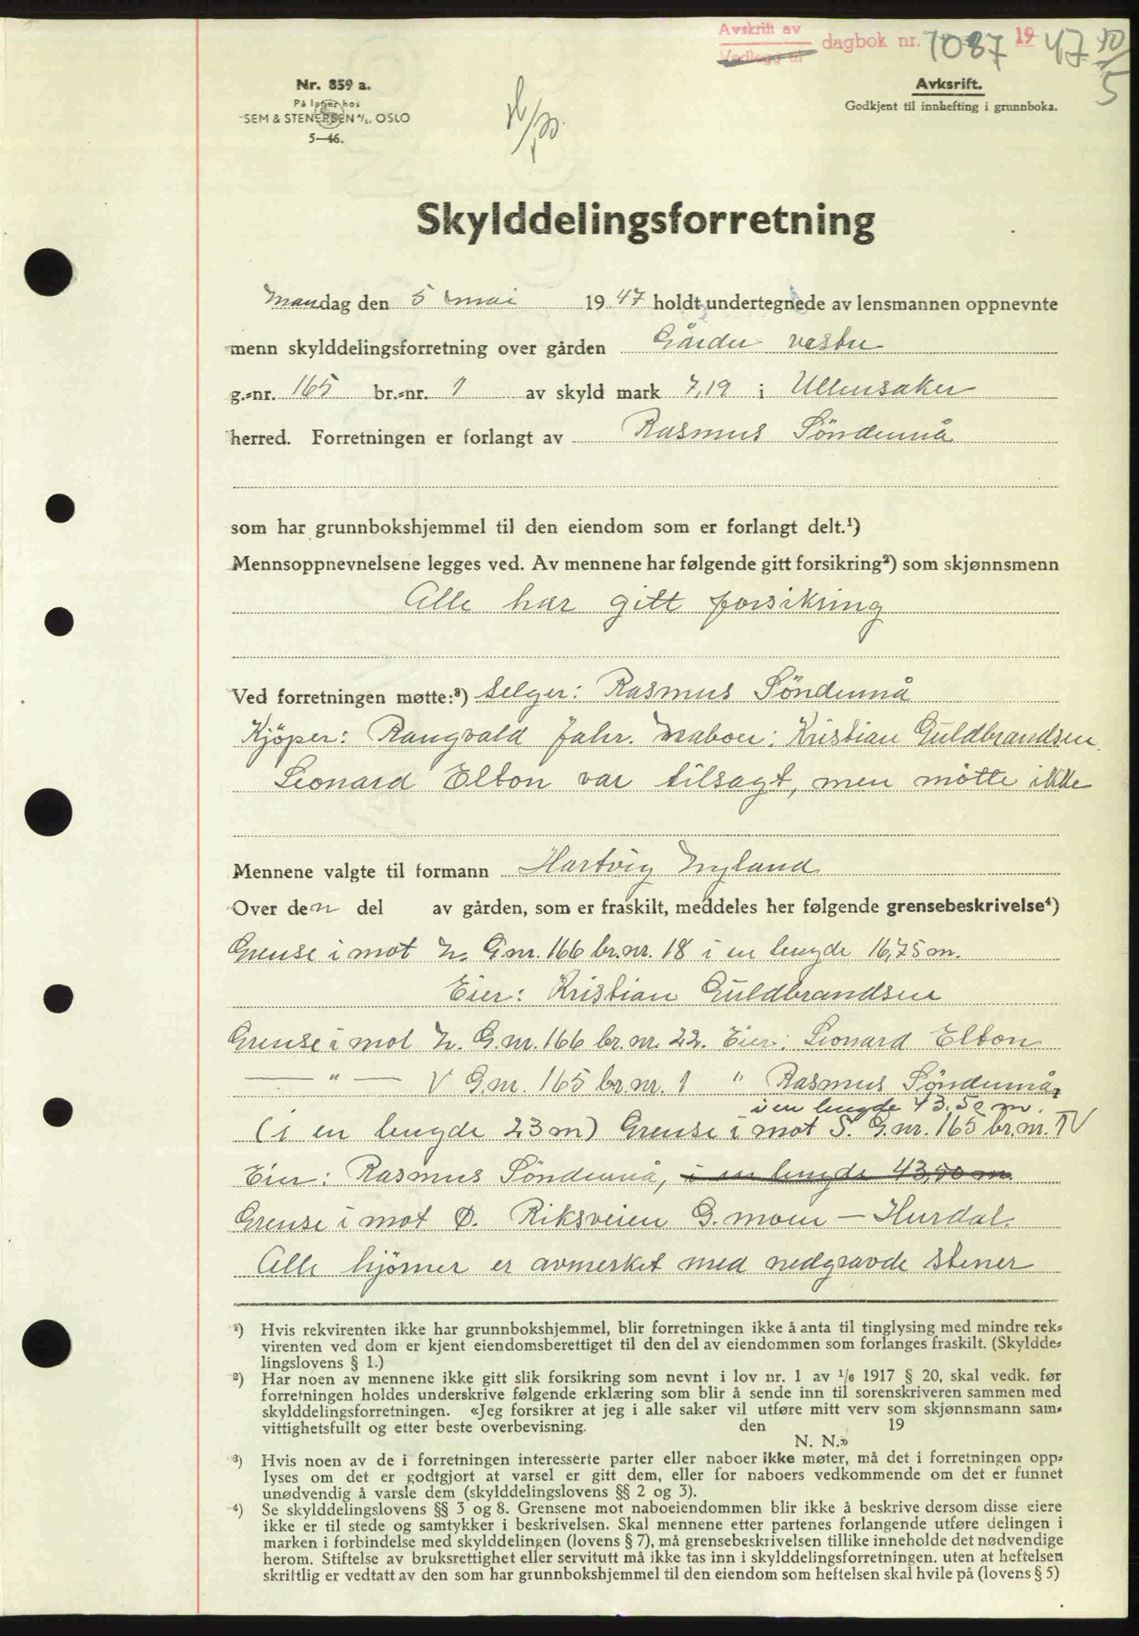 Avskrift av
Vedlegg til
dagbok nr. 1087 1947 30/5
Nr. 859 a.
På lager hos
SEM & STENERSEN A/S, OSLO
5—46.
Avksrift.
Godkjent til innhefting i grunnboka.
Skylddelingsforretning
Mandag den 5 mai 1947 holdt undertegnede av lensmannen oppnevnte
menn skylddelingsforretning over gården Gårder vestre
g.-nr. 165 br.-nr. 1 av skyld mark 7,19 i Ullensaker
herred. Forretningen er forlangt av Rasmus Söndenå
som har grunnbokshjemmel til den eiendom som er forlangt delt.¹)
Mennsoppnevnelsene legges ved. Av mennene har følgende gitt forsikring²) som skjønnsmenn
Alle har gitt forsikring
Ved forretningen møtte:³) Selger: Rasmus Söndenå
Kjöper: Rangvald Jahr. Naboer: Kristian Guldbrandsen
Leonard Elton var tilsagt, men mötte ikke
Mennene valgte til formann Hartvig Nyland
Over den del av gården, som er fraskilt, meddeles her følgende grensebeskrivelse⁴)
Grense i mot N. G.nr. 166 br.nr. 18 i en lengde 16,75 m.
Eier: Kristian Guldbrandsen
Grense i mot N. G.nr. 166 br.nr. 22. Eier: Leonard Elton
— " — V G.nr. 165 br.nr. 1 " Rasmus Söndenå,
i en lengde 43,50 m.
(i en lengde 23 m) Grense i mot S. G.nr. 165 br.nr. IV
Eier: Rasmus Söndenå, i en lengde 43,50 m
Grense i mot Ø. Riksveien G.moen — Hurdal.
Alle hjörner er avmerket med nedgravde stener
¹) Hvis rekvirenten ikke har grunnbokshjemmel, blir forretningen ikke å anta til tinglysing med mindre rek-
virenten ved dom er kjent eiendomsberettiget til den del av eiendommen som forlanges fraskilt. (Skyldde-
lingslovens § 1.)
²) Har noen av mennene ikke gitt slik forsikring som nevnt i lov nr. 1 av 1/6 1917 § 20, skal vedk. før
forretningen holdes underskrive følgende erklæring som blir å sende inn til sorenskriveren sammen med
skylddelingsforretningen. «Jeg forsikrer at jeg i alle saker vil utføre mitt verv som skjønnsmann sam-
vittighetsfullt og etter beste overbevisning. den 19
N. N.»
³) Hvis noen av de i forretningen interesserte parter eller naboer ikke møter, må det i forretningen opp-
lyses om det er godtgjort at varsel er gitt dem, eller for naboers vedkommende om det er funnet
unødvendig å varsle dem (skylddelingslovens §§ 2 og 3).
⁴) Se skylddelingslovens §§ 3 og 8. Grensene mot naboeiendommen blir ikke å beskrive dersom disse eiere
ikke er til stede og samtykker i beskrivelsen. Skal mennene etter partenes forlangende utføre delingen i
marken i forbindelse med skylddelingen (lovens § 7), må grensebeskrivelsen tillike inneholde det nødvendige
herom. Stiftelse av bruksrettighet eller servitutt må ikke tas inn i skylddelingsforretningen. uten at heftelsen
skriftlig er vedtatt av den som har grunnbokshjemmel til den eiendom som heftelsen skal hvile på (lovens § 5)